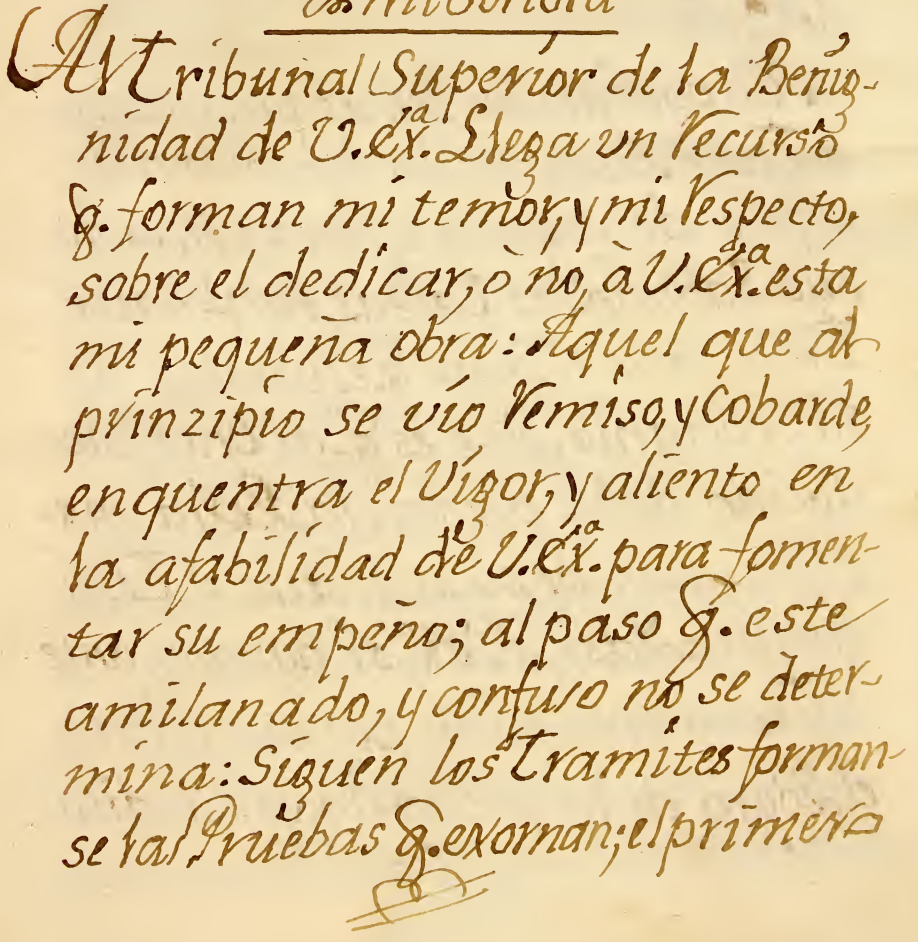 Al Tribunal Superior de la Benig-
nidad de V.Exª. Llega un recurso
q. forman mi temor, y mi respecto,
sobre el dedicar, ò no, à V.Exª. esta
mi pequeña obra: Aquel que al
prinzipio se vio remiso, y Cobarde,
enquentra el Vigor, y aliento en
la afabilidad de V.Exª. para fomen-
tar su empeño; al paso q. este
amilanado, y confuso no se deter-
mina: Siguen los Tramites forman-
se las Pruebas q. exornan; el primero